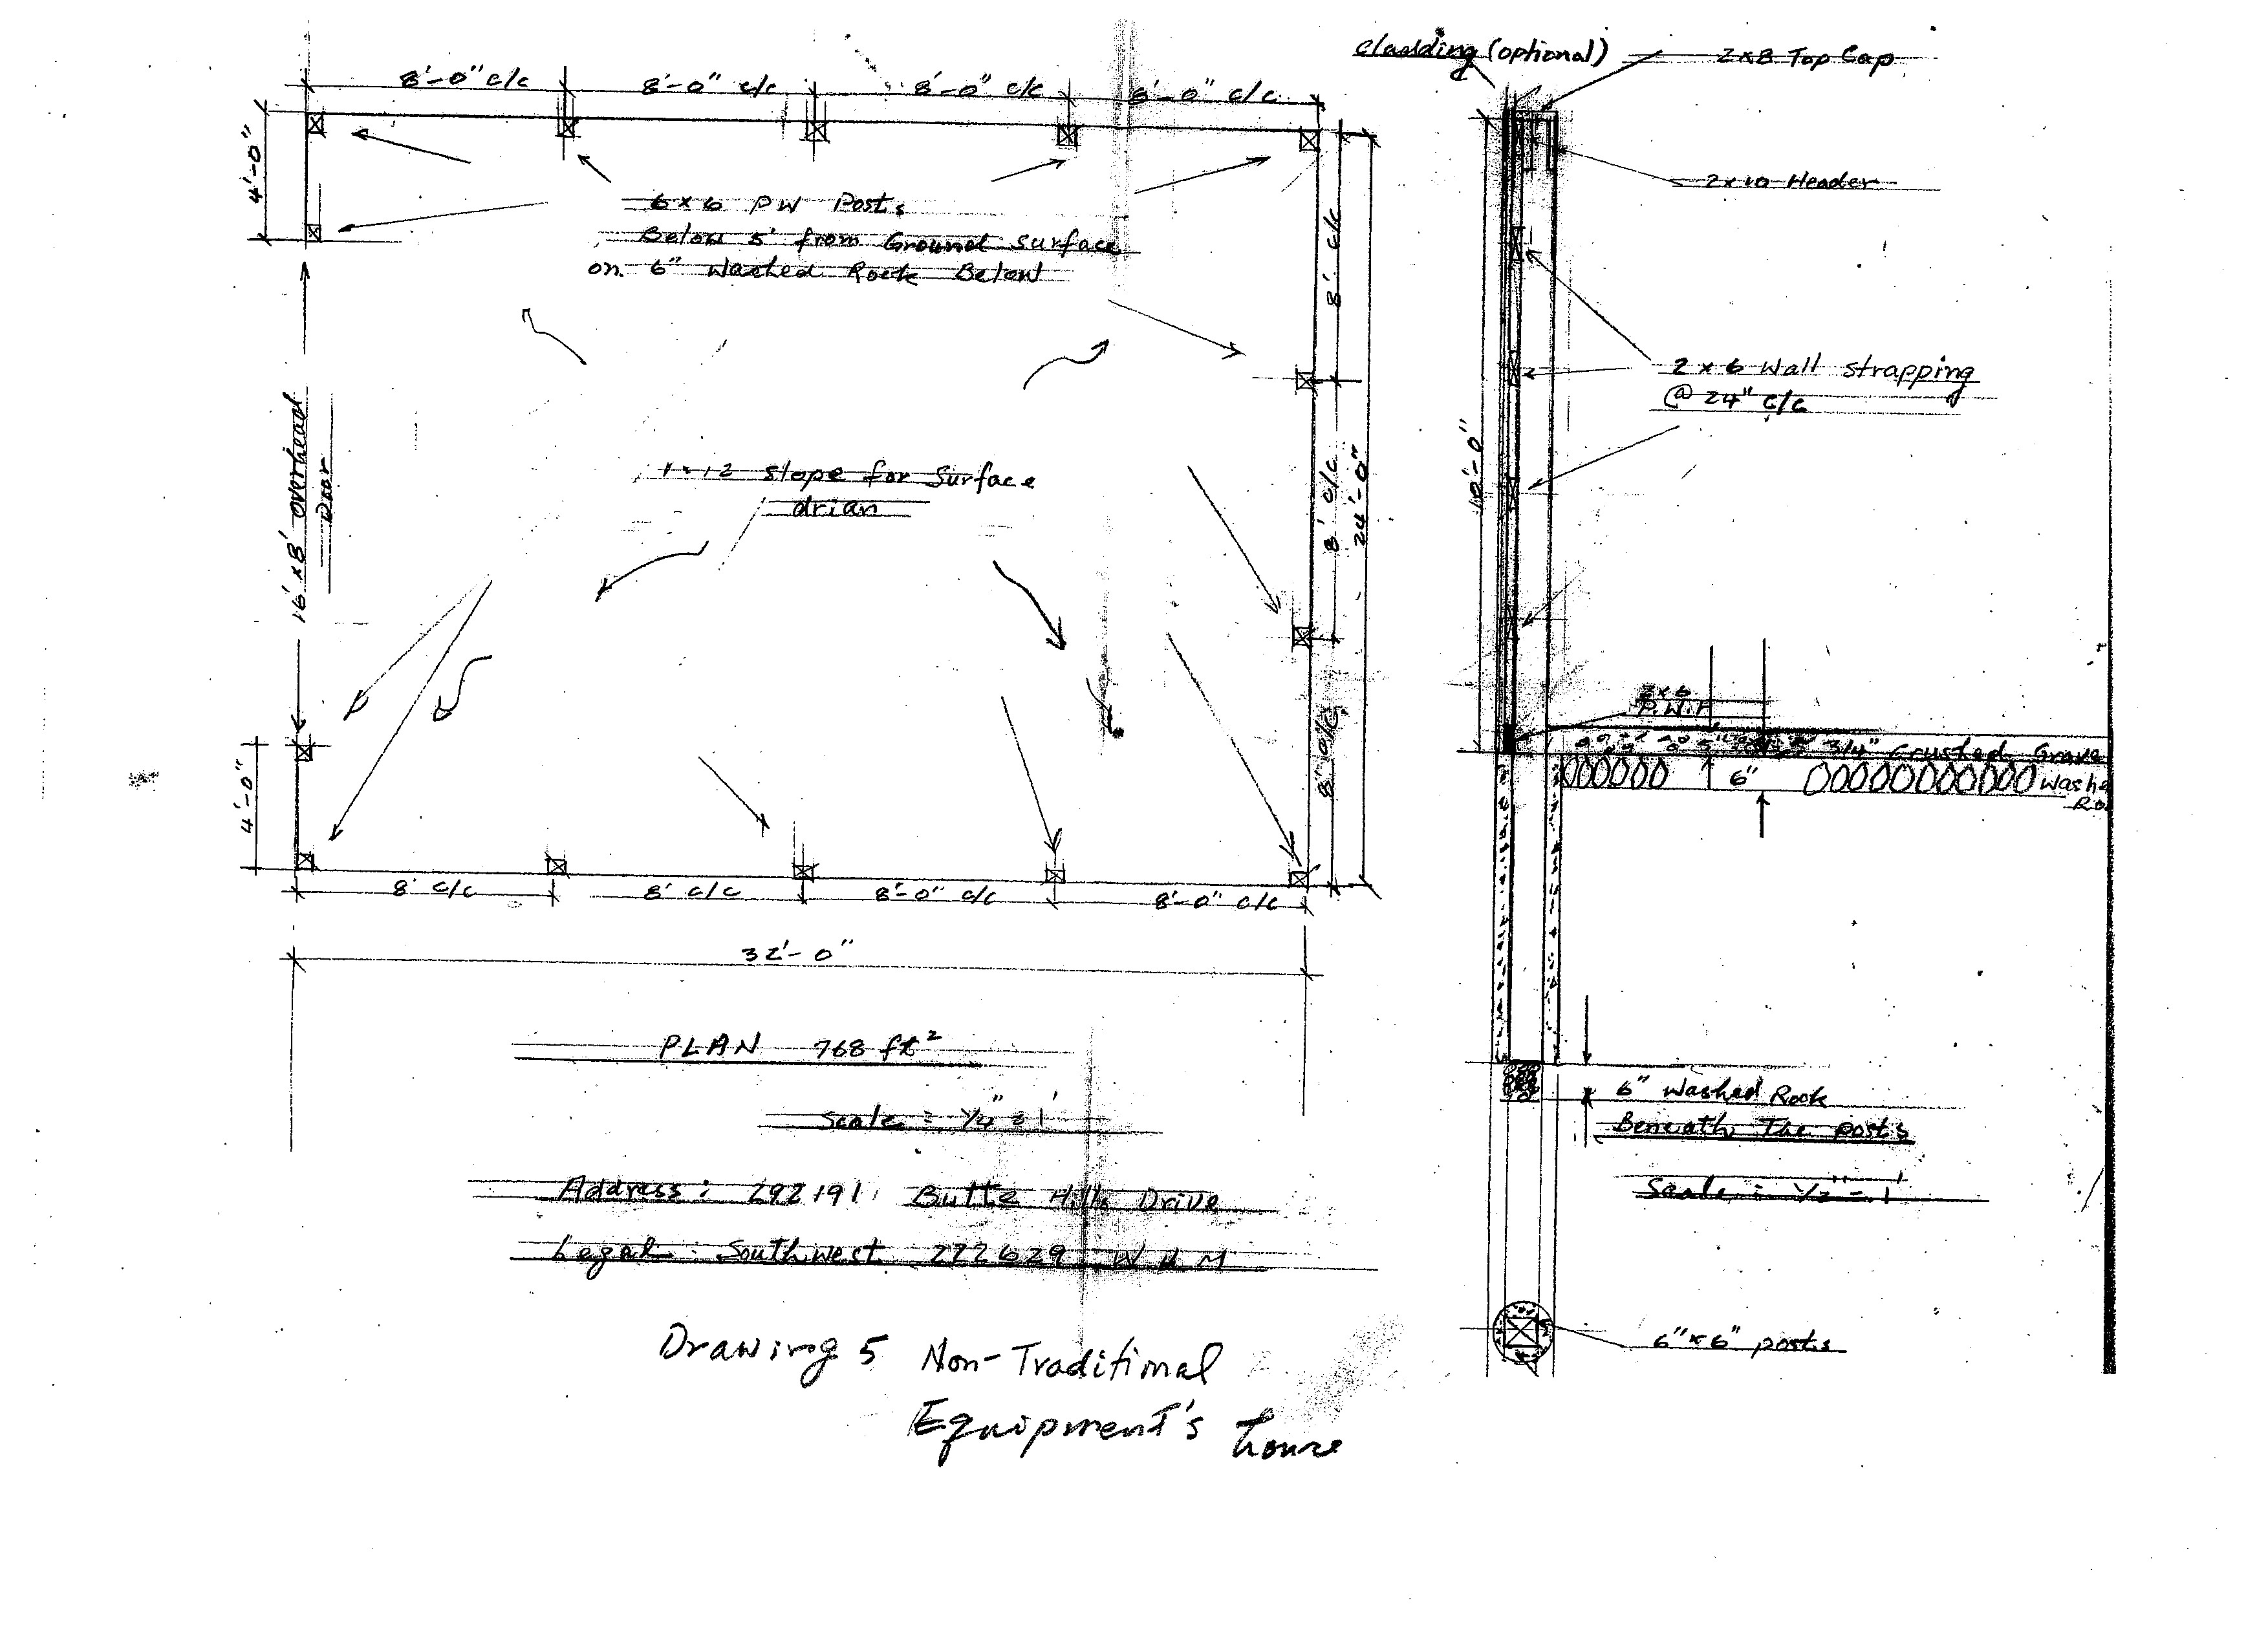 8'-0" c/c
8'-0" c/c
8'-0" c/c
8'-0" c/c
4'-0"
6x6 PW Posts
Below 5' from Ground Surface
on 6" Washed Rock Below
8' c/c
8' c/c
24'-0"
8' c/c
16' x 8' overhead
Door
1:12 slope for Surface
drian
4'-0"
8' c/c
8' c/c
8'-0" c/c
8'-0" c/c
32'-0"
PLAN 768 ft²
Scale = 1/4" = 1'
Address: 292191 Butte Hills Drive
Legal: Southwest 222629 W4M
Drawing 5 Non-Traditional
Equipment's house
cladding (optional)
2x8 Top Cap
2x10 Header
2x6 Wall strapping
@ 24" c/c
10'-0"
P.W.F
3/4" Crushed Grave
6"
Wash
Ro
6" Washed Rock
Beneath The posts
Scale = 1/2" = 1'
6"x6" posts